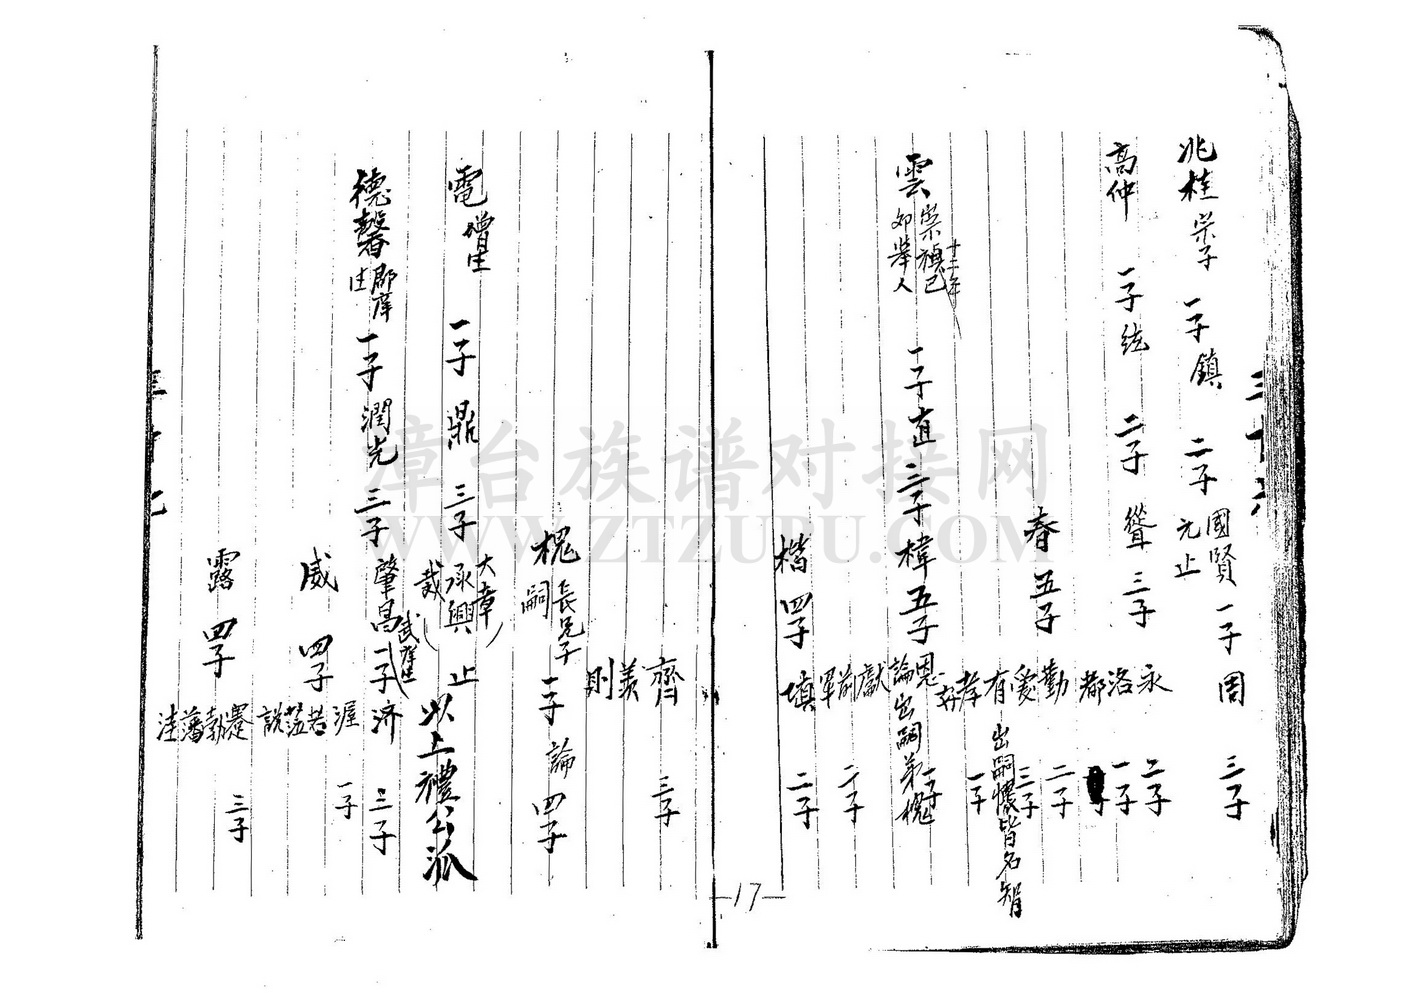 兆桂 崇子 一子鎮 二子 國賢 一子周 三子
元止
高仲 一子統 二子聳 三子
永 二子
洛 一子
都
春 五子
勤 二子
愛 三子
有 出嗣懷皆名智
孝 一子
雲 崇禎己卯舉人 十二年 一子直 三子樟 五子
恩 一子
論 出嗣弟槐
獻
前 二子
軍
楷 四子
填 二子
-17-
齊 三子
美
則
槐 長兄子嗣 一子論 四子
電 增生 一子鼎 三子
大章
承興 止
裁
以上禮公派
德馨 郡庠生 一子潤光 三子肇昌 武庠生 一子济 三子
威 四子
渥 一子
若
說
露 四子
三子
勃
藩
洼
章台族谱对接网
WWW.ZTZUPU.COM